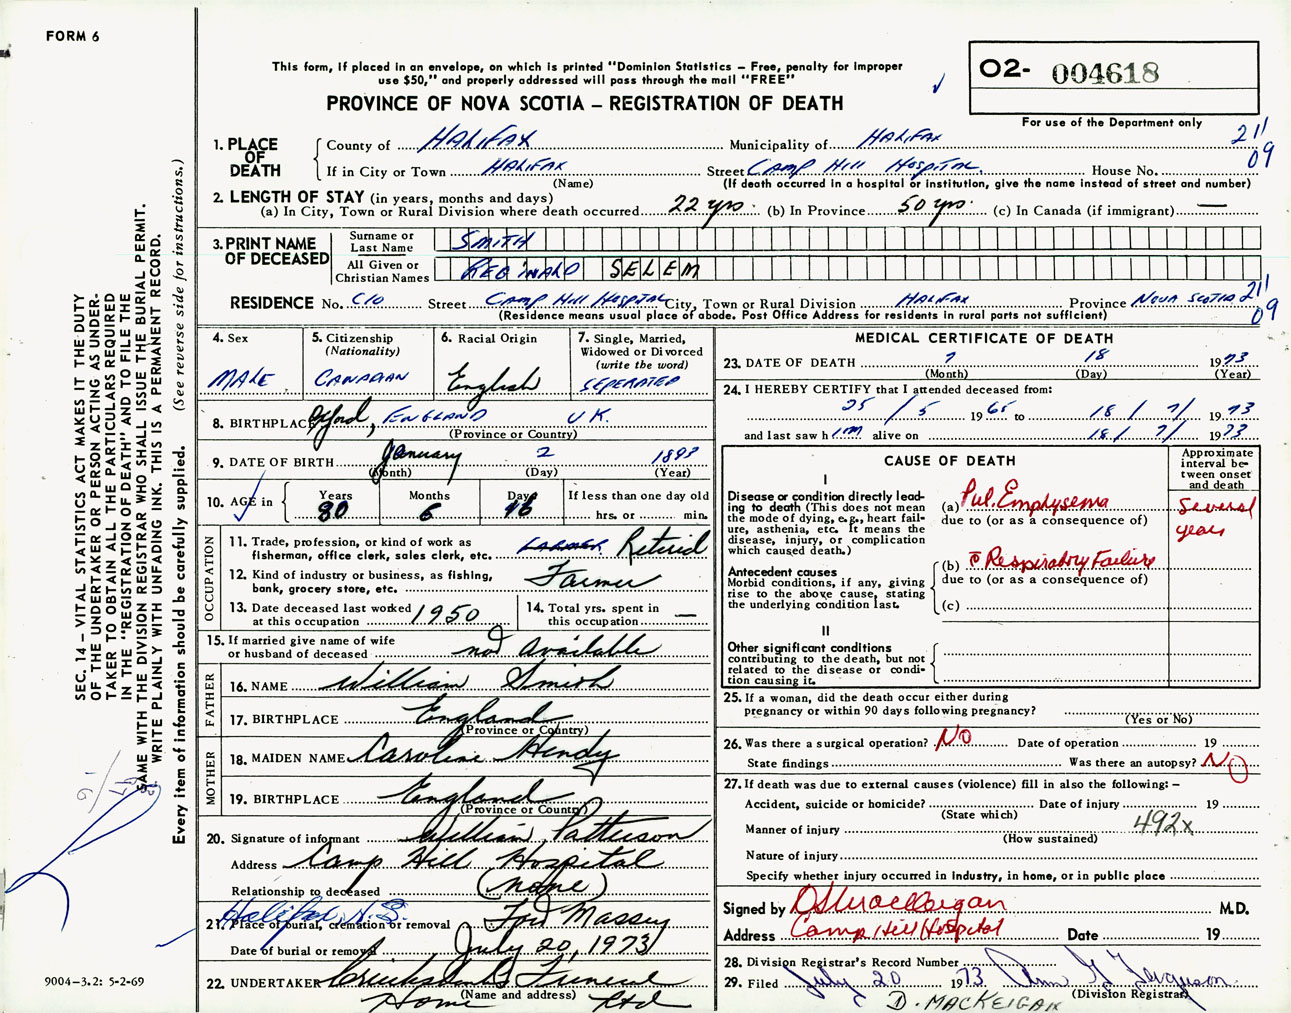 FORM 6
This form, if placed in an envelope, on which is printed "Dominion Statistics – Free, penalty for improper
use $50," and properly addressed will pass through the mail "FREE"
PROVINCE OF NOVA SCOTIA – REGISTRATION OF DEATH
O2- 004618
For use of the Department only
211
09
1. PLACE OF DEATH
County of HALIFAX Municipality of HALIFAX
If in City or Town HALIFAX Street CAMP HILL HOSPITAL. House No.
(Name) (If death occurred in a hospital or institution, give the name instead of street and number)
2. LENGTH OF STAY (in years, months and days)
(a) In City, Town or Rural Division where death occurred 22 yrs. (b) In Province 50 yrs. (c) In Canada (if immigrant) —
3. PRINT NAME OF DECEASED
Surname or Last Name SMITH
All Given or Christian Names REGINALD SELEM
RESIDENCE No. C/O Street CAMP HILL HOSPITAL City, Town or Rural Division HALIFAX Province NOVA SCOTIA
(Residence means usual place of abode. Post Office Address for residents in rural parts not sufficient)
211
09
4. Sex
MALE
5. Citizenship
(Nationality)
CANADIAN
6. Racial Origin
English
7. Single, Married,
Widowed or Divorced
(write the word)
SEPERATED
8. BIRTHPLACE Oxford, ENGLAND U.K.
(Province or Country)
9. DATE OF BIRTH January 2 1893
(Month) (Day) (Year)
10. AGE in
Years Months Days
80 6 16
If less than one day old
hrs. or min.
OCCUPATION
11. Trade, profession, or kind of work as
fisherman, office clerk, sales clerk, etc. FARMER Retired
12. Kind of industry or business, as fishing,
bank, grocery store, etc. Farmer
13. Date deceased last worked
at this occupation 1950
14. Total yrs. spent in
this occupation —
15. If married give name of wife
or husband of deceased not Available
FATHER
16. NAME William Smith
17. BIRTHPLACE England
(Province or Country)
MOTHER
18. MAIDEN NAME Caroline Hendy
19. BIRTHPLACE England
(Province or Country)
20. Signature of informant William Patterson
Address Camp Hill Hospital
Relationship to deceased (none)
Halifax, N.S.
21. Place of burial, cremation or removal Fort Massey
Date of burial or removal July 20, 1973
22. UNDERTAKER Cruikshank's Funeral
(Name and address)
Home Ltd
MEDICAL CERTIFICATE OF DEATH
23. DATE OF DEATH 7 18 1973
(Month) (Day) (Year)
24. I HEREBY CERTIFY that I attended deceased from:
25 / 5 1965 to 18 / 7 / 1973
and last saw him alive on 18 / 7 / 1973
CAUSE OF DEATH
Approximate
interval be-
tween onset
and death
I
Disease or condition directly lead-
ing to death (This does not mean
the mode of dying, e.g., heart fail-
ure, asthenia, etc. It means the
disease, injury, or complication
which caused death.)
(a) Pul. Emphysema
due to (or as a consequence of)
Several
years
Antecedent causes
Morbid conditions, if any, giving
rise to the above cause, stating
the underlying condition last.
(b) c̄ Respiratory Failure
due to (or as a consequence of)
(c)
II
Other significant conditions
contributing to the death, but not
related to the disease or condi-
tion causing it.
25. If a woman, did the death occur either during
pregnancy or within 90 days following pregnancy?
(Yes or No)
26. Was there a surgical operation? No Date of operation 19
State findings Was there an autopsy? No
27. If death was due to external causes (violence) fill in also the following: –
Accident, suicide or homicide? Date of injury 19
(State which)
Manner of injury 492x
(How sustained)
Nature of injury
Specify whether injury occurred in industry, in home, or in public place
Signed by M.D.
Address Camp Hill Hospital Date 19
28. Division Registrar's Record Number
29. Filed July 20 1973 Ann G Ferguson
(Division Registrar)
D. MACKEIGAN
SEC. 14 – VITAL STATISTICS ACT MAKES IT THE DUTY
OF THE UNDERTAKER OR PERSON ACTING AS UNDER-
TAKER TO OBTAIN ALL THE PARTICULARS REQUIRED
IN THE "REGISTRATION OF DEATH" AND TO FILE THE
SAME WITH THE DIVISION REGISTRAR WHO SHALL ISSUE THE BURIAL PERMIT.
WRITE PLAINLY WITH UNFADING INK. THIS IS A PERMANENT RECORD.
Every item of information should be carefully supplied. (See reverse side for instructions.)
9004-3.2: 5-2-69